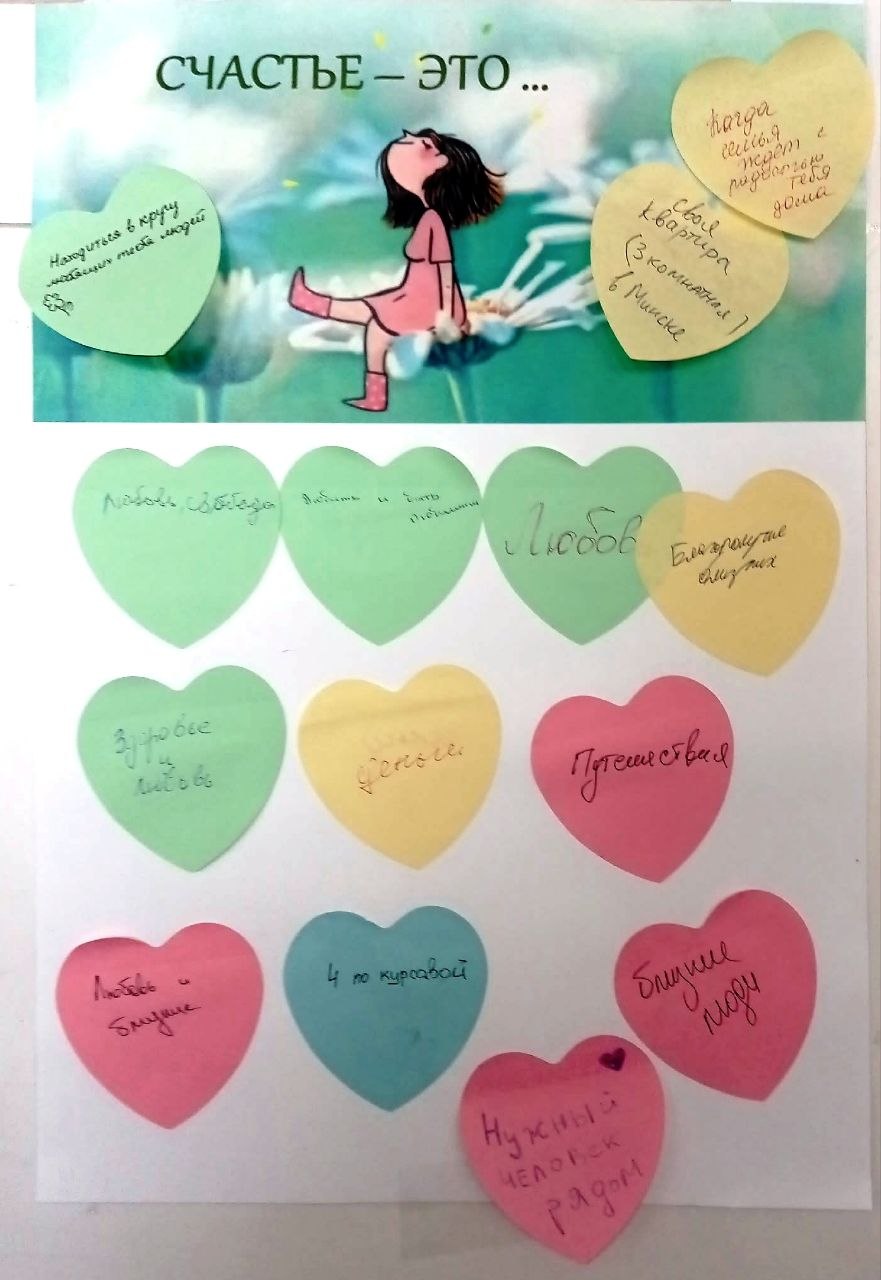 СЧАСТЬЕ – ЭТО ...
Когда
семья
ждёт с
радостью
тебя
дома
Находиться в кругу
любящих тебя людей
своя
квартира
(3 комнатная)
в Минске
Любовь, свобода
Любить и быть
любимым
Любовь
Благополучие
близких
Здоровье
и
любовь
деньги
Путешествия
Любовь и
близкие
4 по курсавой
близкие
люди
Нужный
человек
рядом